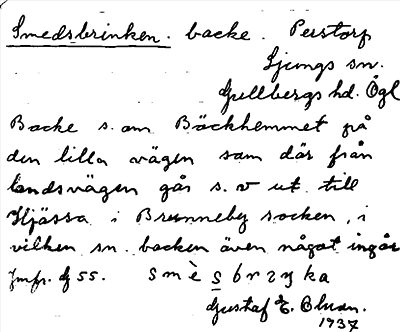 Smedsbrinken. backe. Perstorp
Ljungs sn.
Gullbergs hd. Ögl
Backe s. om Bäckhemmet på
den lilla vägen som där från
landsvägen går s.v ut till
Hjässa i Brunneby socken, i
vilken sn. backen även något ingår
Jmfr. g 55. smèsbrzŋka
Gustaf E. Olsson.
1937